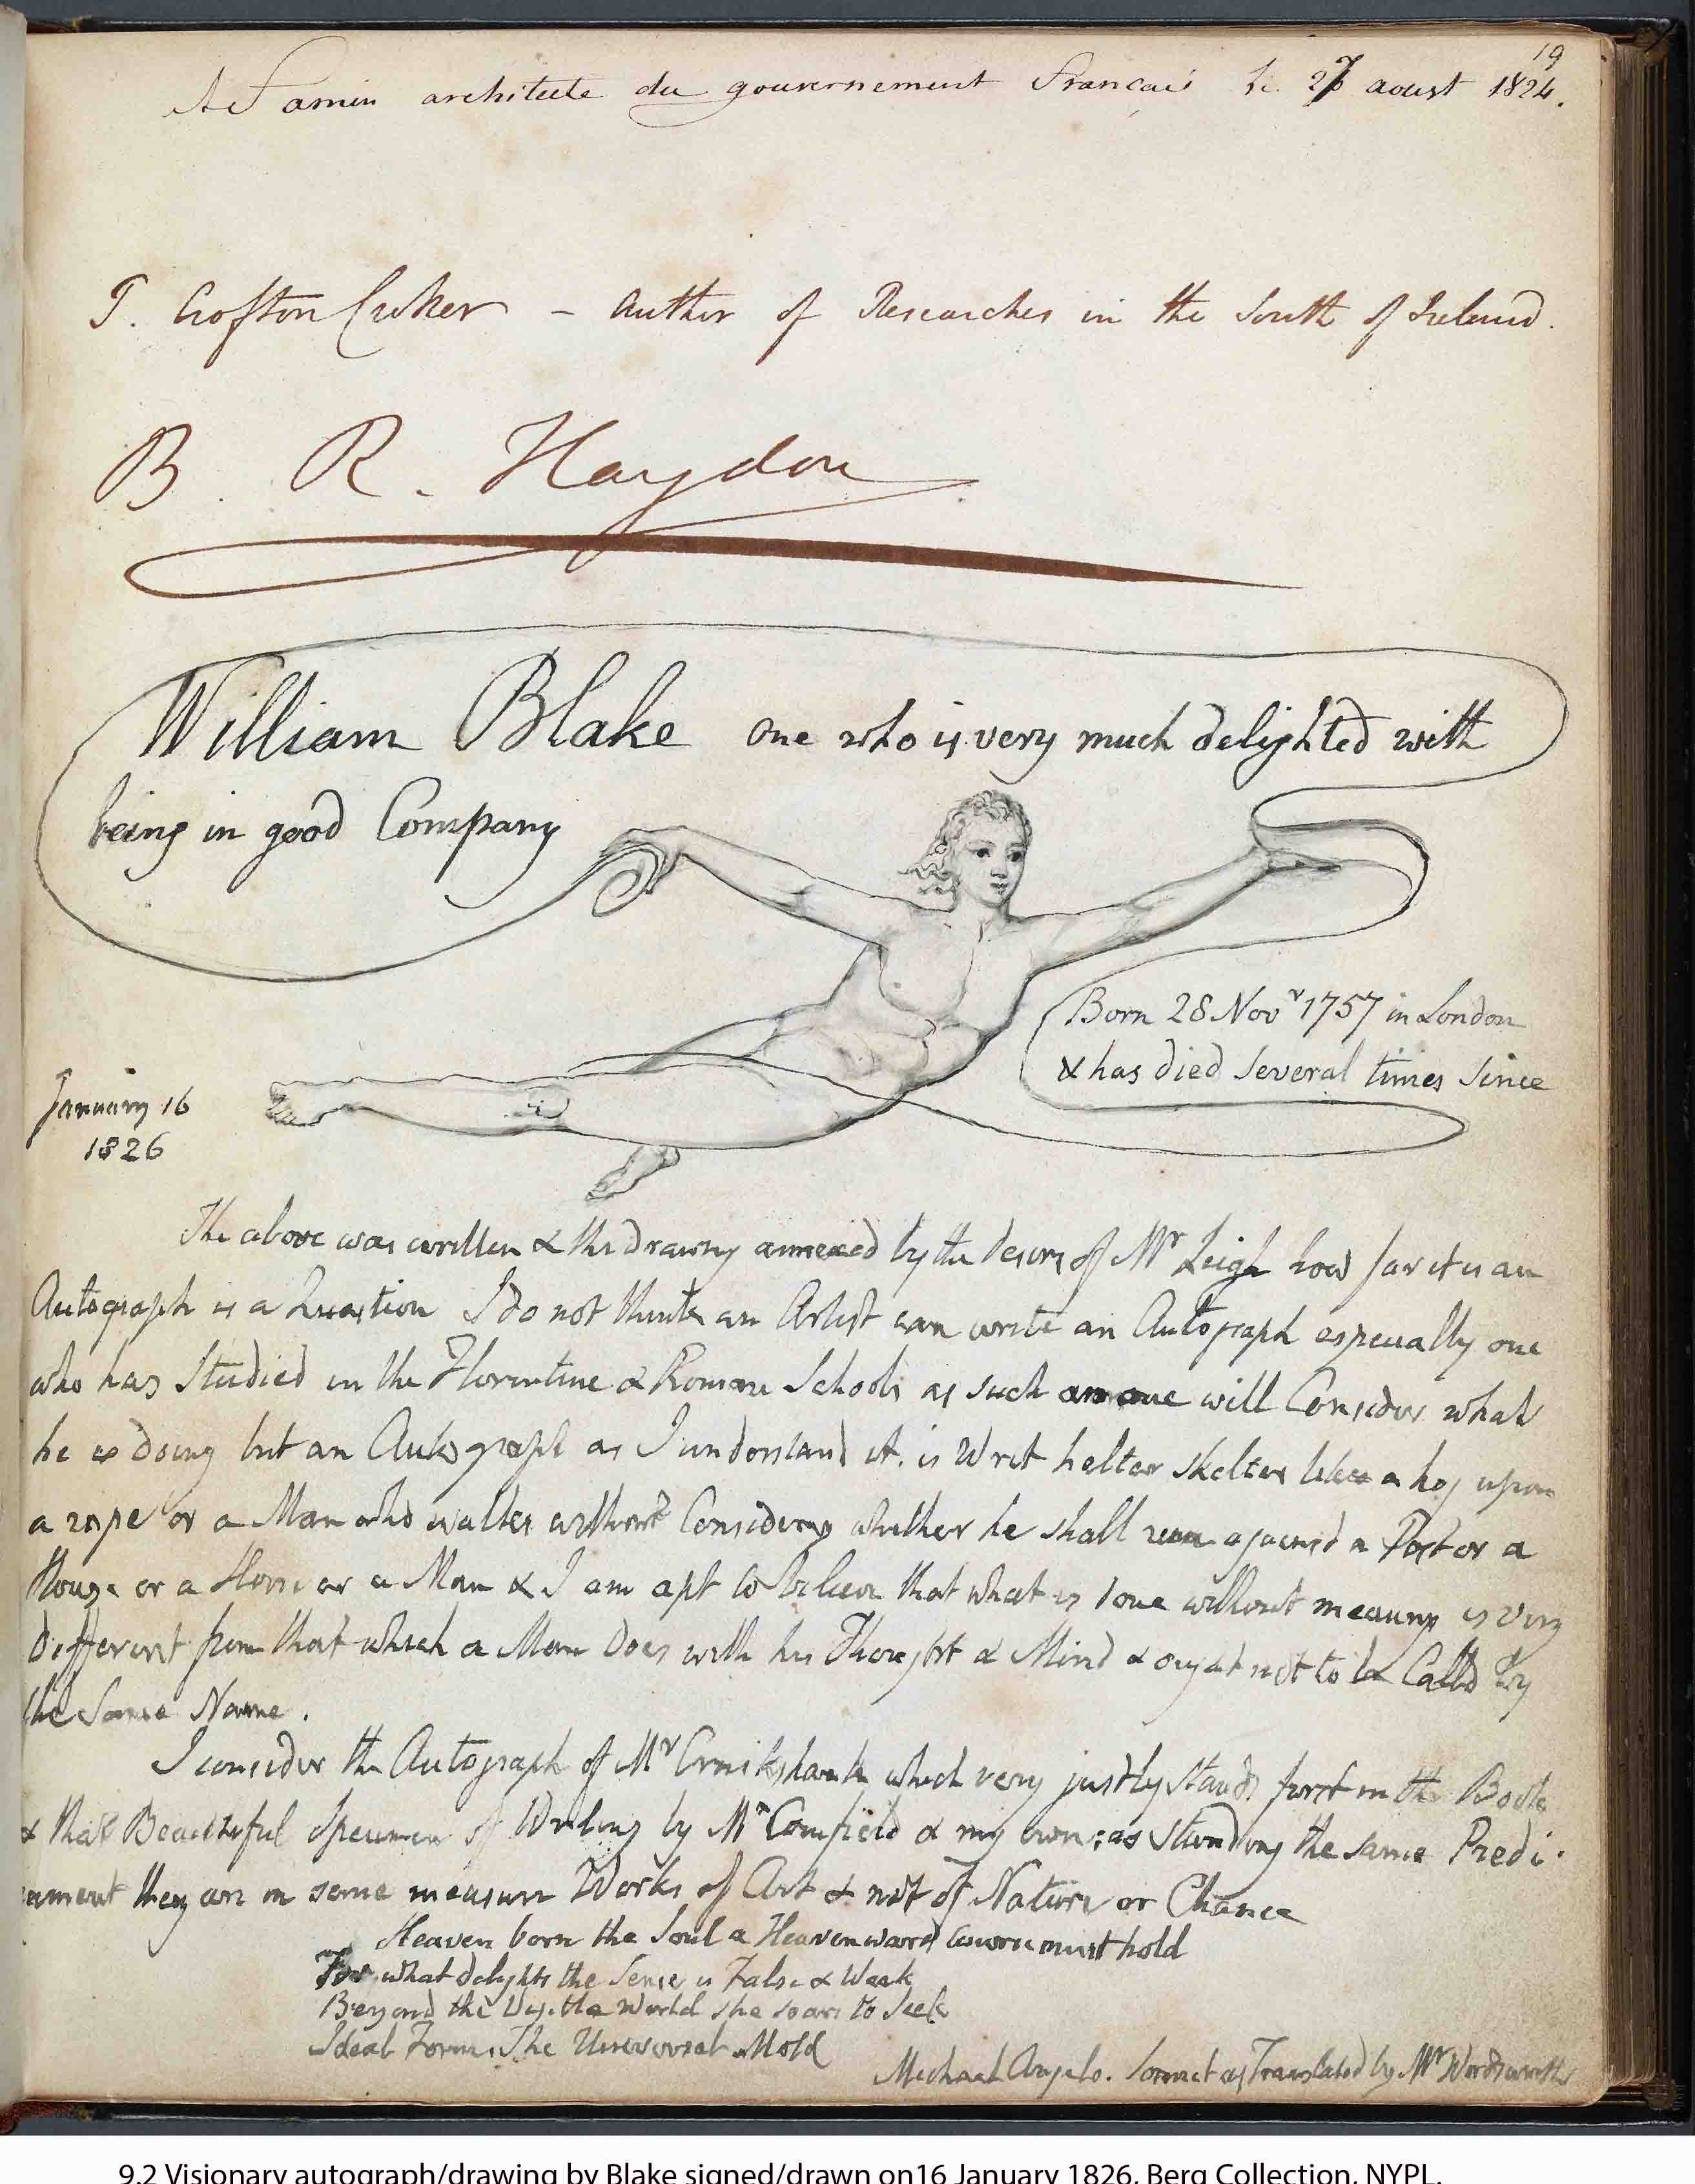 19
architecte du gouvernement Francais le 27 aoust 1824.
T. Crofton Croker – Author of Researches in the South of Ireland.
B. R. Haydon
William Blake one who is very much delighted with
being in good Company
Born 28 Nov<sup>r</sup> 1757 in London
& has died several times since
January 16
1826
The above was written & the drawing annexed by the desire of M<sup>r</sup> Leigh how far it is an
Autograph is a Question I do not think an Artist can write an Autograph especially one
who has Studied in the Florentine & Roman Schools as such an one will Consider what
he is doing but an Autograph as I understand it, is Writ helter skelter like a hog upon
a rope or a Man who walks without Considering whether he shall run against a Post or a
House or a Horse or a Man & I am apt to believe that what is done without meaning is very
different from that which a Man Does with his Thought & Mind & ought not to be Calld by
the Same Name.
I consider the Autograph of M<sup>r</sup> Cruikshank which very justly stands first in the Book
& that Beautiful Specimen of Writing by M<sup>r</sup> Comfield & my own; as standing the same Predi-
cament they are in some measure Works of Art & not of Nature or Chance
Heaven born the Soul a Heavenward Course must hold
For what delights the Sense is False & Weak
Beyond the Visible World she soars to Seek
Ideal Form, The Universal Mold
Michael Angelo. Sonnet as Translated by M<sup>r</sup> Wordsworth
9.2 Visionary autograph/drawing by Blake signed/drawn on16 January 1826, Berg Collection, NYPL.